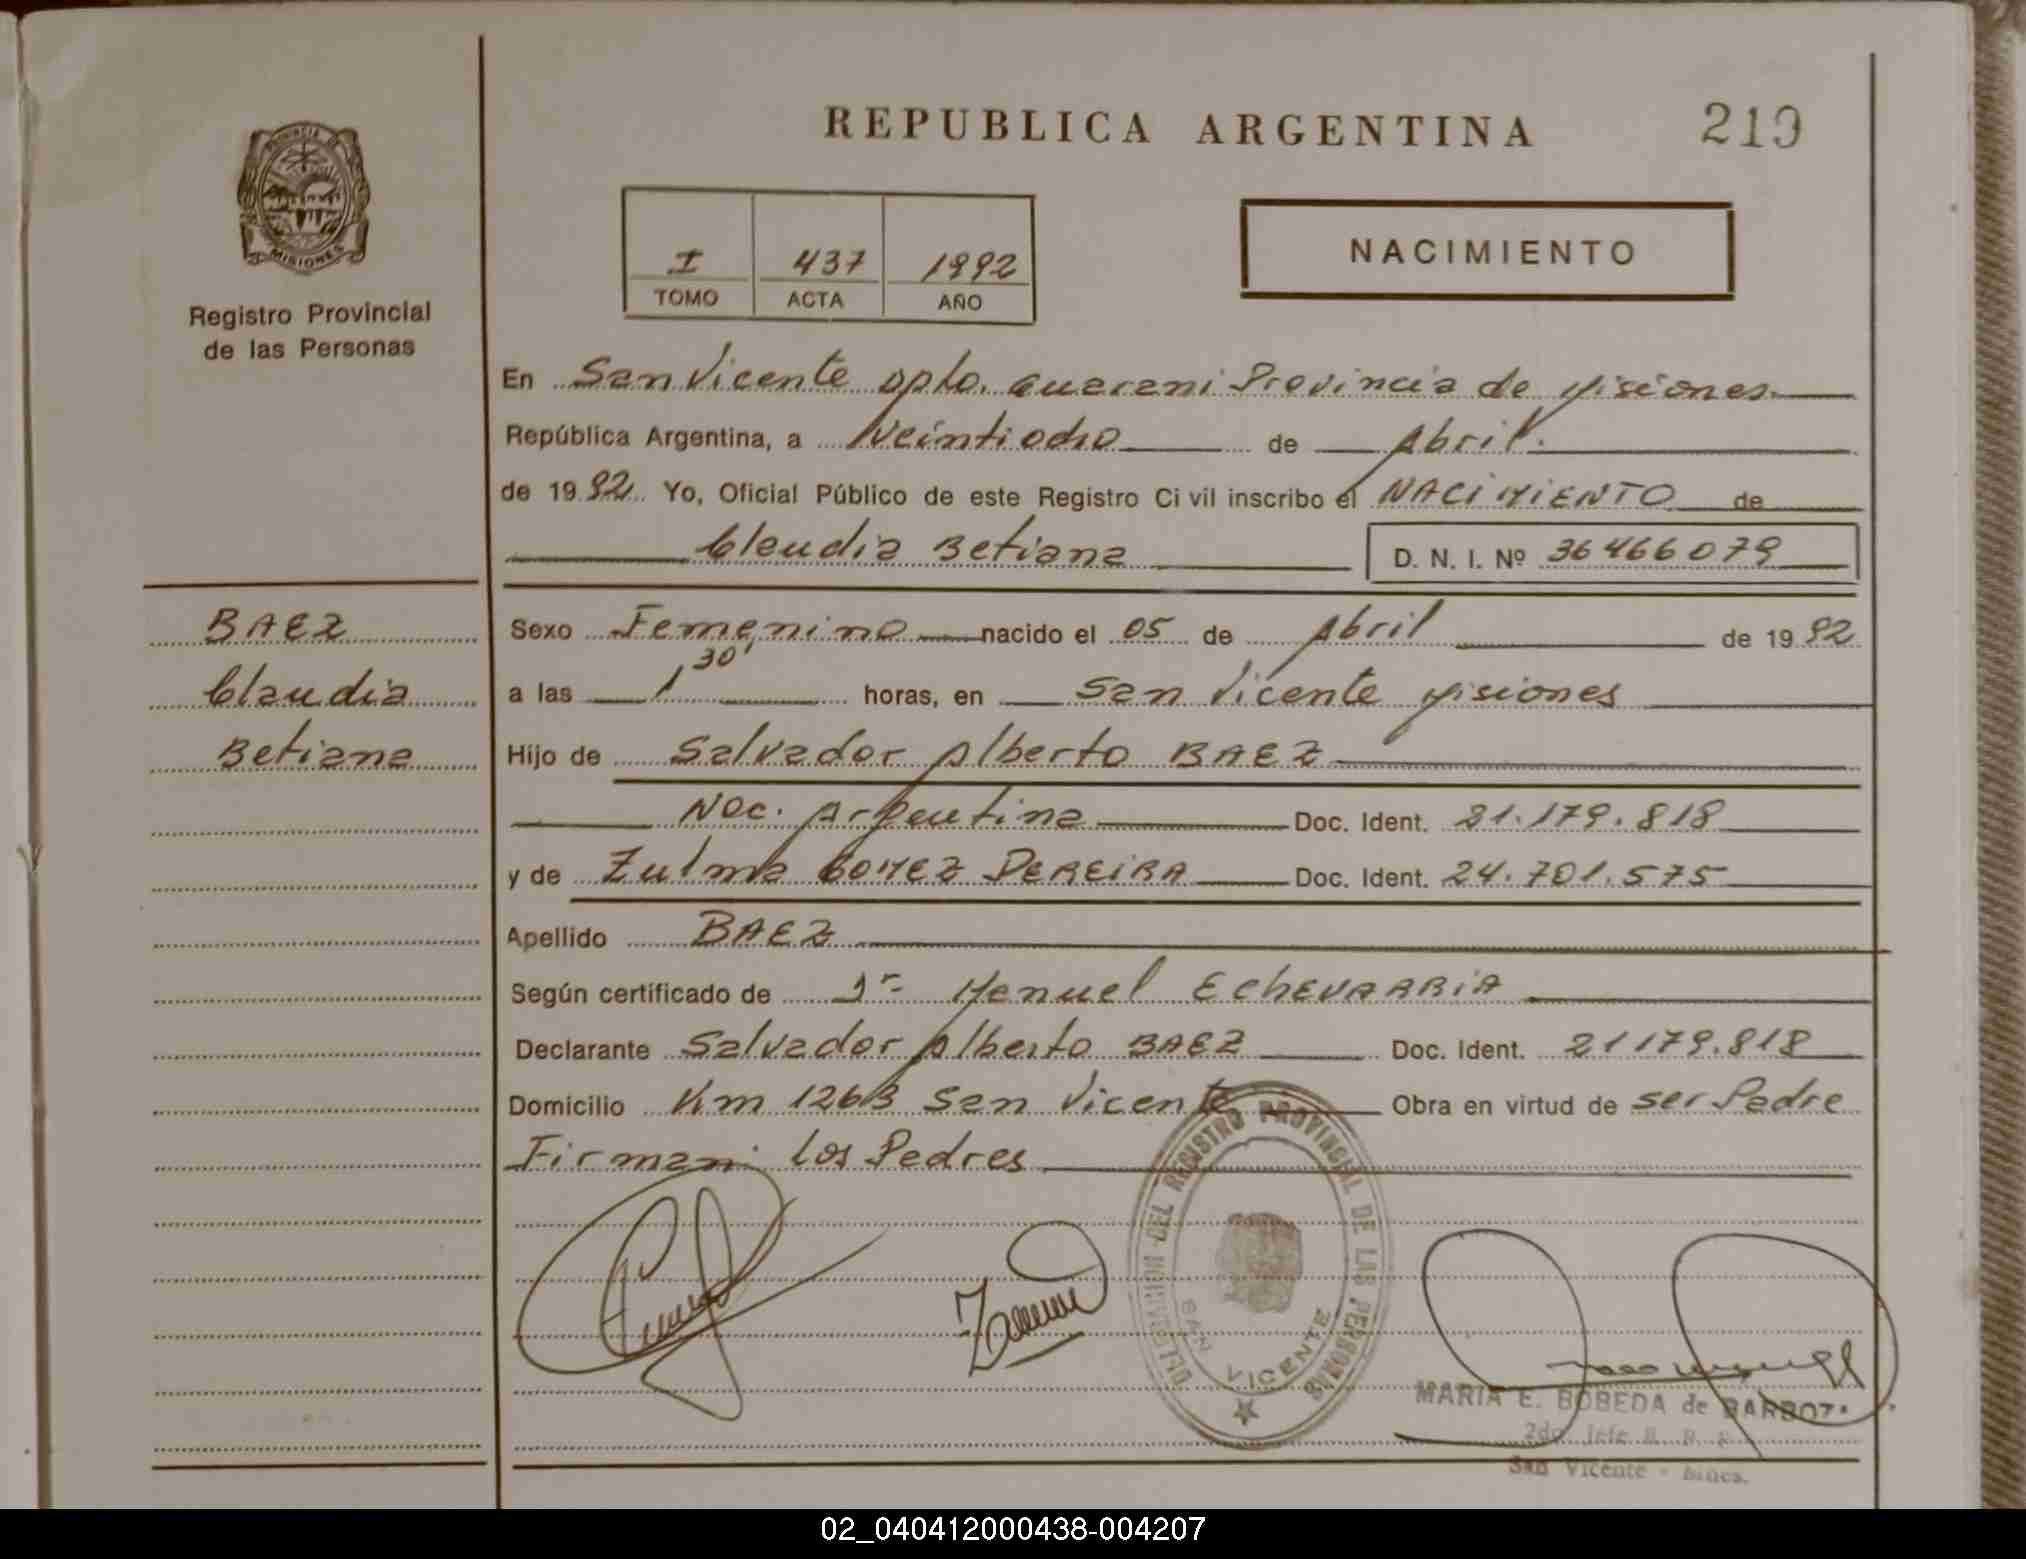 REPUBLICA ARGENTINA
219
PROVINCIA D
MISIONES
Registro Provincial
de las Personas
I 437 1992
TOMO ACTA AÑO
NACIMIENTO
En San Vicente Dpto. Guarani Provincia de Misiones
República Argentina, a Veintiocho de Abril.
de 1992 Yo, Oficial Público de este Registro Ci vil inscribo el NACIMIENTO de
Claudia Betiana D. N. I. Nº 36466079
BAEZ
Claudia
Betiana
Sexo Femenino nacido el 05 de Abril de 1992
a las 1,30' horas, en San Vicente Misiones
Hijo de Salvador Alberto BAEZ
Nac. Argentina Doc. Ident. 21.179.818
y de Zulma GOMEZ PEREIRA Doc. Ident. 24.701.575
Apellido BAEZ
Según certificado de Dr. Manuel ECHEVARRIA
Declarante Salvador Alberto BAEZ Doc. Ident. 21179.818
Domicilio Km 1263 San Vicente Obra en virtud de ser Padre
Firman: los Padres
DELEGACION DEL REGISTRO PROVINCIAL DE LAS PERSONAS
SAN VICENTE
MARIA E. BOBEDA de
San Vicente - Mnes.
02_040412000438-004207